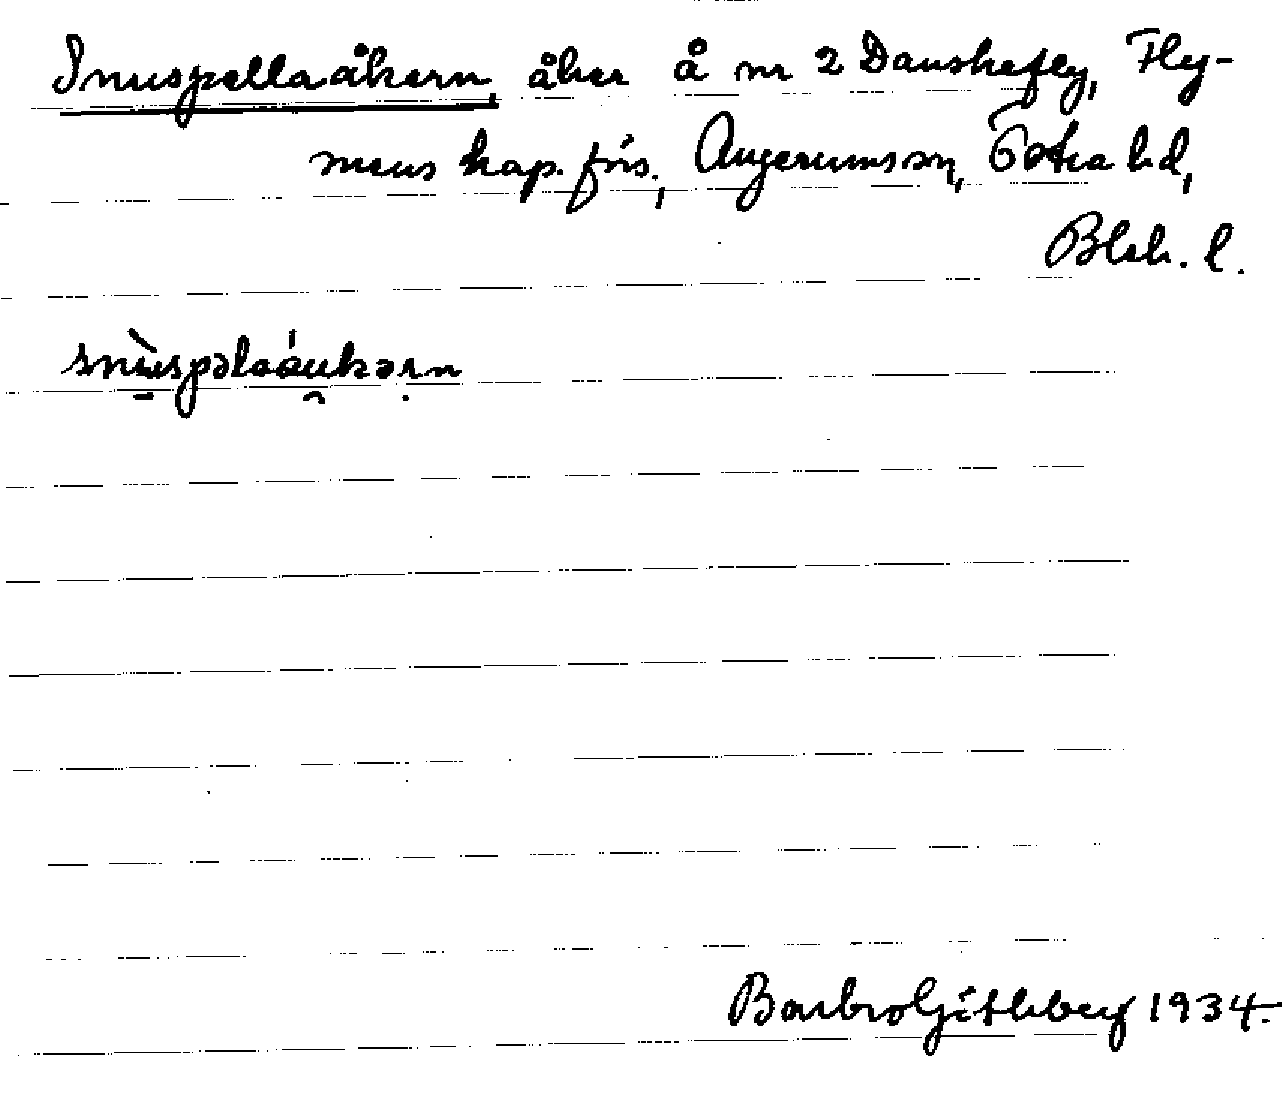 Snuspellaåkern, åker å nr 2 Danskefly, Fly-
mens kap. förs., Augerums sn, Östra hd,
Blek. l.
snùspəlaáukərn
Barbro Götheberg 1934.